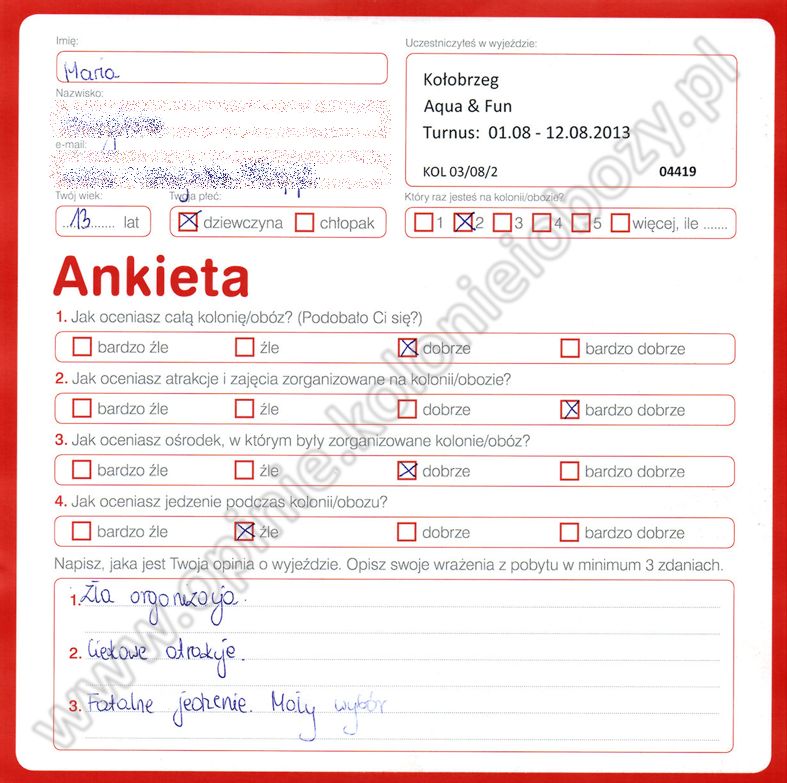 Imię:
Uczestniczyłeś w wyjeździe:
Maria
Kołobrzeg
Aqua & Fun
Turnus: 01.08 - 12.08.2013
KOL 03/08/2 04419
Nazwisko:
e-mail:
Twój wiek:
Twoja płeć:
Który raz jesteś na kolonii/obozie?
13 lat
dziewczyna chłopak
1 2 3 4 5 więcej, ile .......
Ankieta
1. Jak oceniasz całą kolonię/obóz? (Podobało Ci się?)
bardzo źle źle dobrze bardzo dobrze
2. Jak oceniasz atrakcje i zajęcia zorganizowane na kolonii/obozie?
bardzo źle źle dobrze bardzo dobrze
3. Jak oceniasz ośrodek, w którym były zorganizowane kolonie/obóz?
bardzo źle źle dobrze bardzo dobrze
4. Jak oceniasz jedzenie podczas kolonii/obozu?
bardzo źle źle dobrze bardzo dobrze
Napisz, jaka jest Twoja opinia o wyjeździe. Opisz swoje wrażenia z pobytu w minimum 3 zdaniach.
1. Zła organizacja.
2. Ciekawe atrakcje.
3. Fatalne jedzenie. Mały wybór
www.opinie.kolonieiobozy.pl